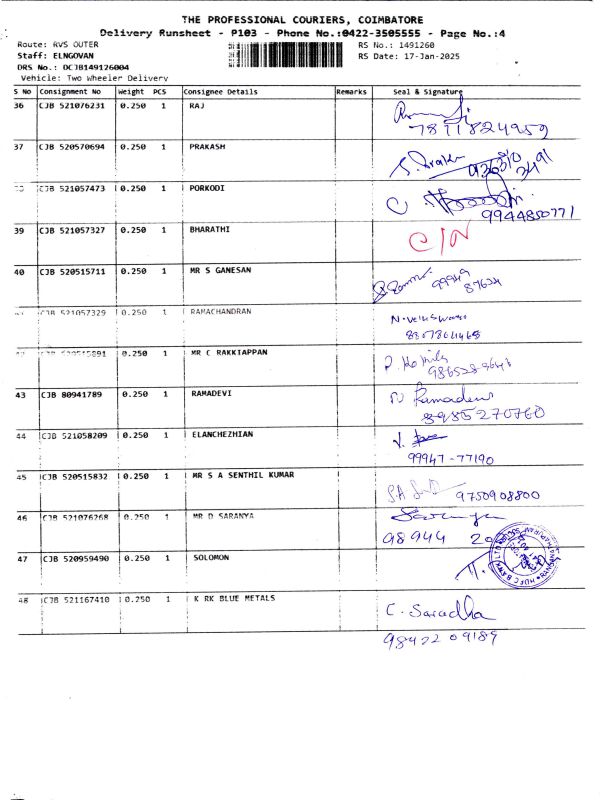 THE PROFESSIONAL COURIERS, COIMBATORE
Delivery Runsheet - P103 - Phone No.:0422-3505555 - Page No.:4
Route: RVS OUTER RS No.: 1491260
Staff: ELNGOVAN RS Date: 17-Jan-2025
DRS No.: DCJB149126004
Vehicle: Two Wheeler Delivery
S No Consignment No Weight PCS Consignee Details Remarks Seal & Signature
36 CJB 521076231 0.250 1 RAJ
7811824959
37 CJB 520570694 0.250 1 PRAKASH
CJB 521057473 0.250 1 PORKODI
9944850771
39 CJB 521057327 0.250 1 BHARATHI
C/N
40 CJB 520515711 0.250 1 MR S GANESAN
99949
87624
CJB 521057329 0.250 1 RAMACHANDRAN
CJB 520515891 0.250 1 MR C RAKKIAPPAN
43 CJB 80941789 0.250 1 RAMADEVI
Ramadevi
8985270760
44 CJB 521058209 0.250 1 ELANCHEZHIAN
99947-77190
45 CJB 520515832 0.250 1 MR S A SENTHIL KUMAR
9750908800
46 CJB 521076268 0.250 1 MR D SARANYA
Saranya
98944
47 CJB 520959490 0.250 1 SOLOMON
48 CJB 521167410 0.250 1 K RK BLUE METALS
C. Saradha
9842209189